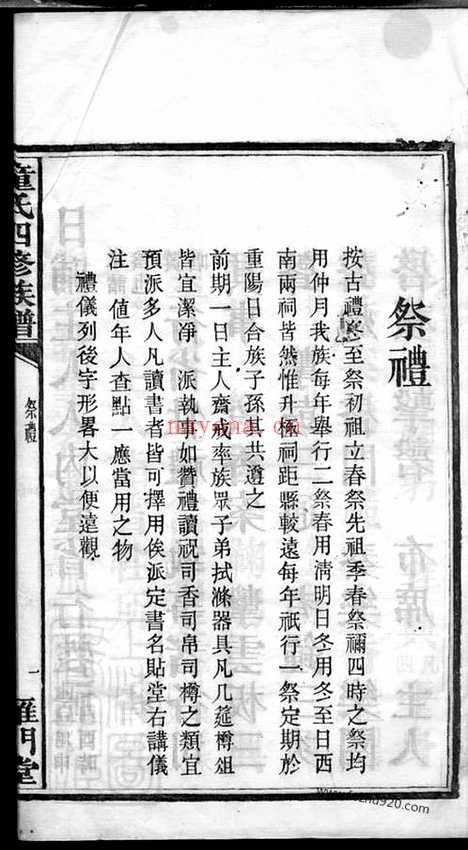 祭禮
按古禮冬至祭初祖立春祭先祖季春祭禰四時之祭均
用仲月我族每年舉行二祭春用淸明日冬用冬至日西
南兩祠皆然惟升極祠距縣較遠每年祇行一祭定期於
重陽日合族子孫其共遵之
前期一日主人齋戒率族眾子弟拭滌器具凡几筵樽俎
皆宜潔凈 派執事如贊禮讀祝司香司帛司樽之類宜
預派多人凡讀書者皆可擇用俟派定書名貼堂右講儀
注 值年人查點一應當用之物
禮儀列後字形畧大以便遠觀
童氏四修族譜
祭禮
一
雁門堂
nnyama.com
fozhu920.com